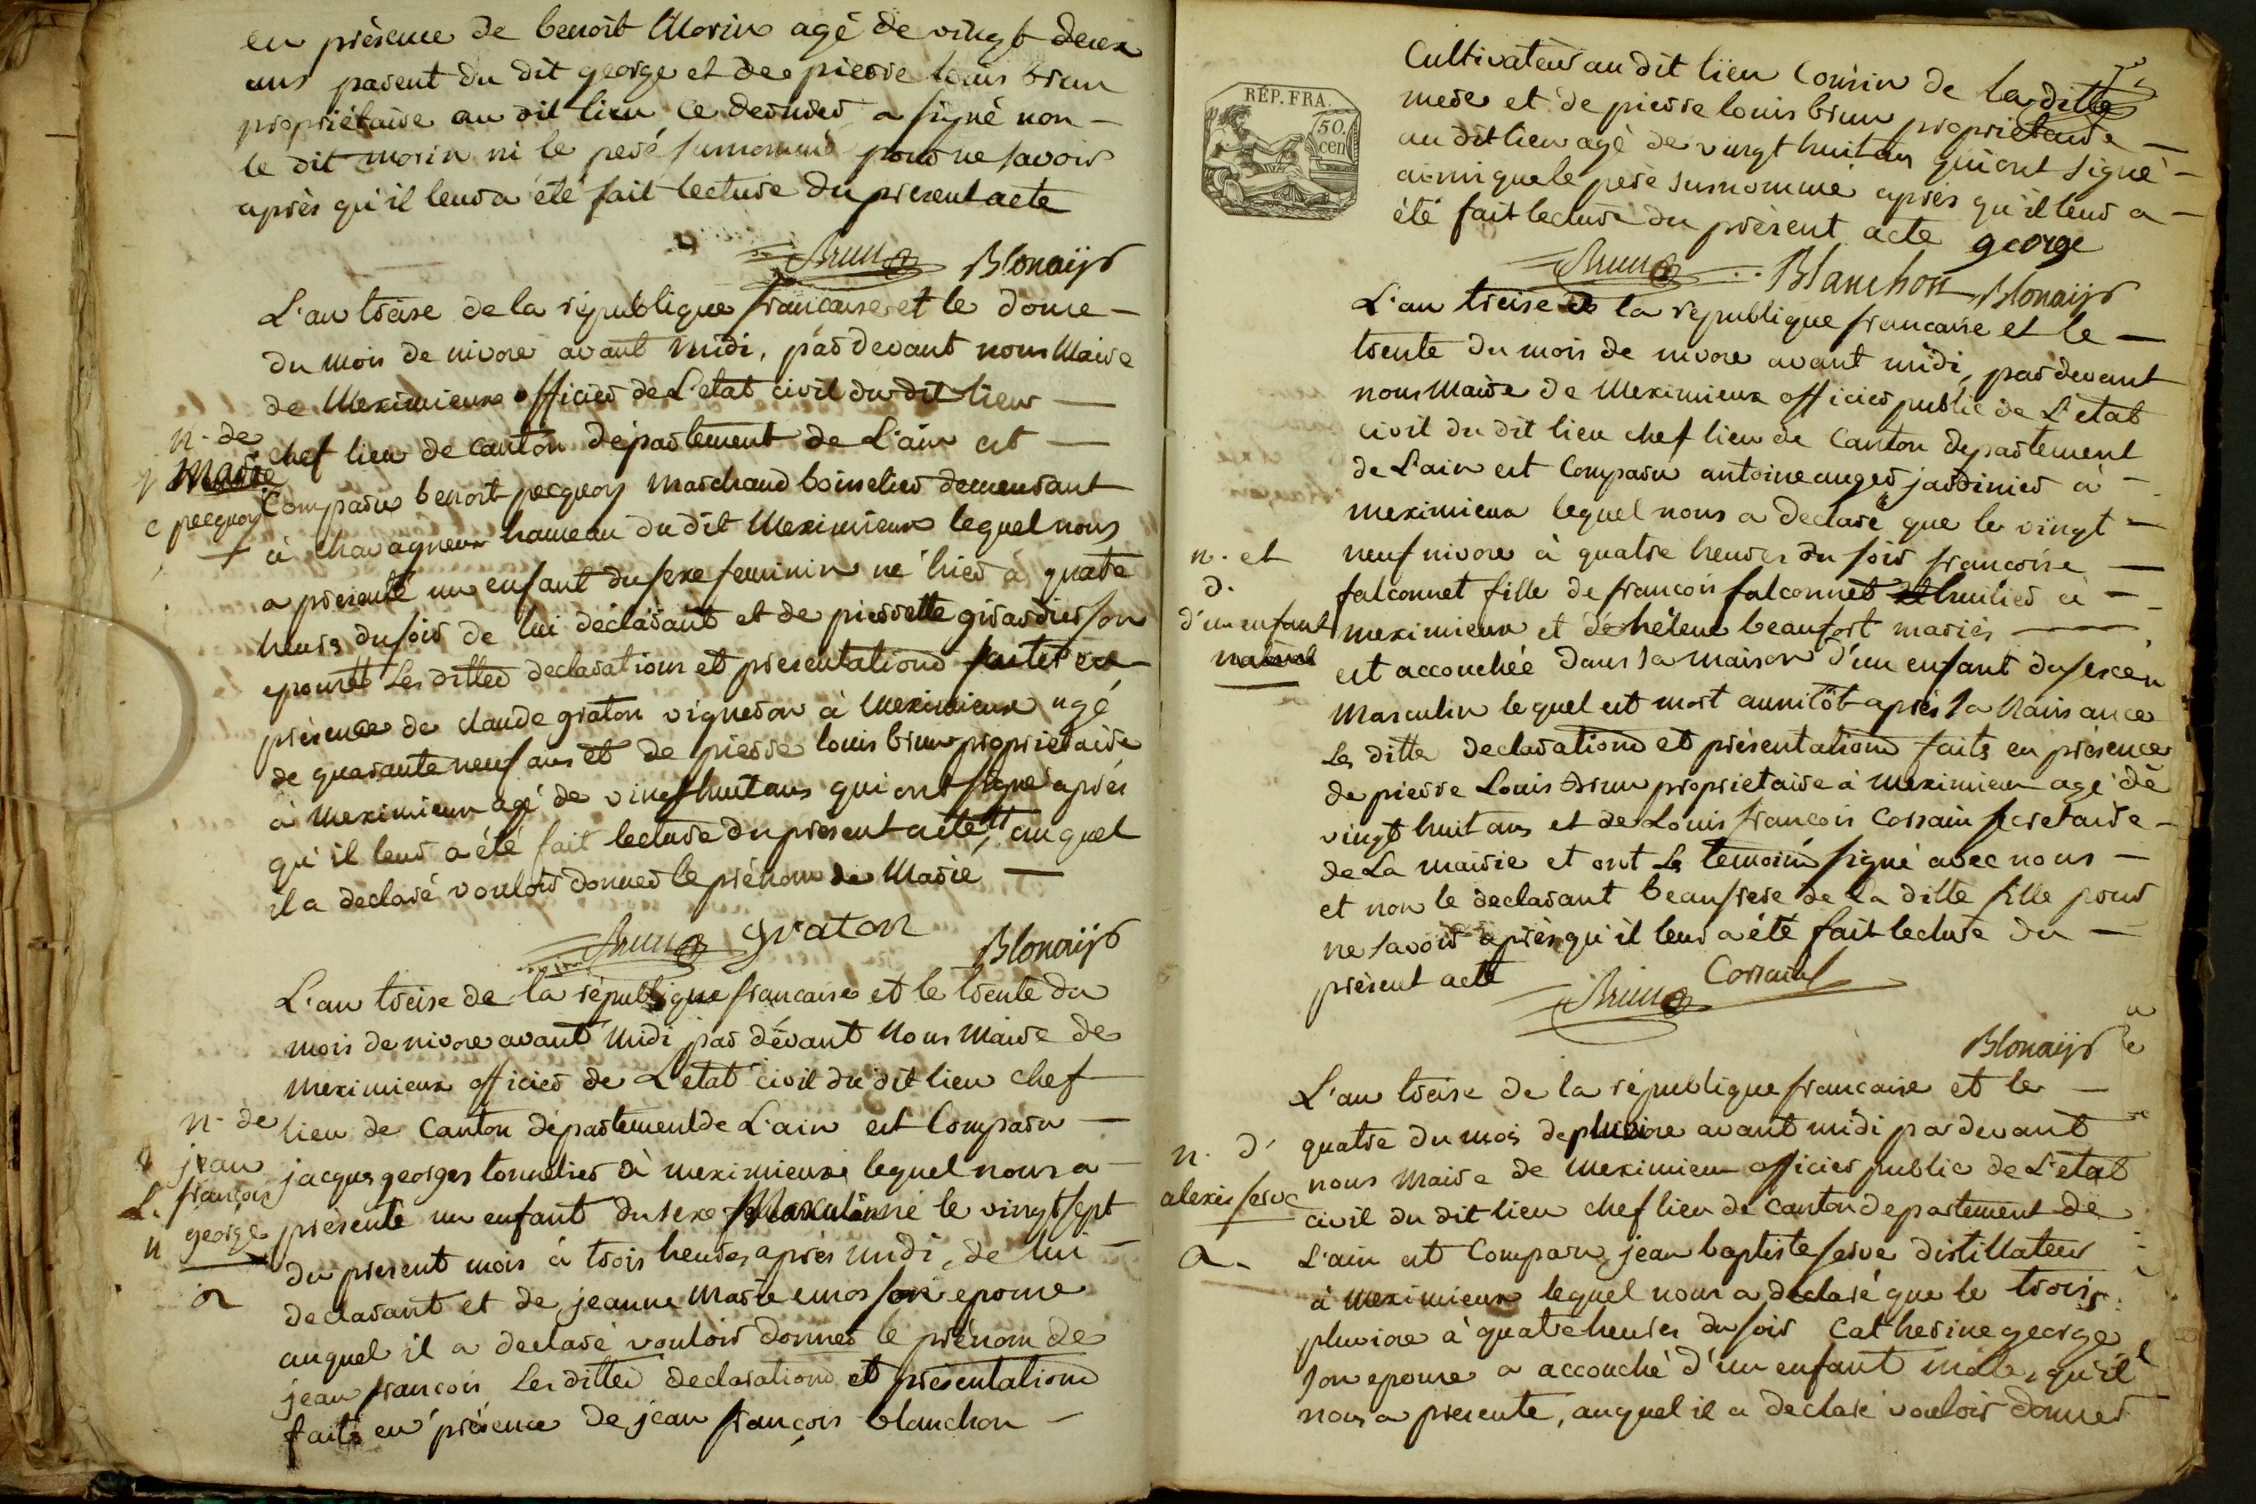 en présence de benoit Morin agé de vingt deux
ans parent du dit george et de pierre louis brun
propriétaire au dit lieu ce dernier a signé non
le dit morin ni le peré surnommé pour ne savoir
après qu'il leur a été fait lecture du present acte
Brun Blonaÿr
L'an treise de la république francaise et le douze
du mois de nivose avant midi, par devant nous Maire
de Meximieux officier de L'etat civil du dit lieu
n. de
Marie
pecquoy
chef lieu de canton département de L'ain est
Comparu benoit pecquoy marchand boisselier demeurant
à chavagneux hameau du dit Meximieux lequel nous
a presenté un enfant du sexe feminin né hier à quatre
heures du soir de lui déclarant et de pierrette girardier son
epouse Les dittes declarations et presentations faites en
présence de claude graton vigneron à Meximieux agé
de quarante neuf ans et de pierre louis brun propriétaire
à Meximieux agé de vingt huit ans qui ont signé après
qu'il leur a été fait lecture du present acte, auquel
il a declaré vouloir donner le prénom de Marie
Brun graton Blonaÿr
L'an treise de la république francaise et le trente du
mois de nivose avant midi par dévant nous Maire de
Meximieux officier de L'etat civil du dit lieu chef
n. de
jean
françois
george
lieu de Canton département de L'ain est Comparu
jacques georges tonnelier à meximieux lequel nous a
présenté un enfant du sexe Masculin né le vingt sept
du present mois à trois heures après midi, de lui
declarant et de jeanne Marie emos son epouse
auquel il a declaré vouloir donner le prénom de
jean francois Les dittes declarations et présentations
faits en présence de jean françois blanchon
RÉP. FRA.
50.
cen
Cultivateur au dit lieu Cousin de la ditte
mere et de pierre louis brun propriétaire
au dit lieu agé de vingt huit ans qui ont signé
ainsi que le pere surnommé après qu'il leur a
été fait lecture du présent acte george
Brun Blanchon Blonaÿr
L'an treise de la république francaise et le
trente du mois de nivose avant midi, par devant
nous Maire de Meximieux officier public de L'etat
civil du dit lieu chef lieu de Canton departement
de L'ain est Comparu antoine auger jardinier à
meximieux lequel nous a declaré que le vingt
n. et
d.
d'un enfant
naturel
neuf nivose à quatre heures du soir francoise
falconnet fille de francois falconnet huilier à
meximieux et de hélene beaufort mariés
est accouchée dans sa maison d'un enfant du sexe
Masculin lequel est mort aussitôt après sa naissance
Les ditte declarations et présentations faits en présence
de pierre Louis Brun propriétaire à meximieux agé de
vingt huit ans et de Louis francois Cossain secretaire
de La mairie et ont Le temoins signé avec nous
et non le declarant beaufrere de la ditte fille pour
ne savoir après qu'il leur a été fait lecture du
présent acte
Brun Cossain
Blonaÿr
L'an treise de la république francaise et le
n. d'
alexis serve
quatre du mois de pluviose avant midi par devant
nous Maire de Meximieux officier public de L'etat
civil du dit lieu chef lieu de Canton departement de
L'ain est Comparu jean baptiste serve distillateur
à Meximieux lequel nous a declaré que le trois
pluviose à quatre heures du soir Catherine george
son epouse a accouché d'un enfant mâle, qu'il
nous a presenté, auquel il a declaré vouloir donner